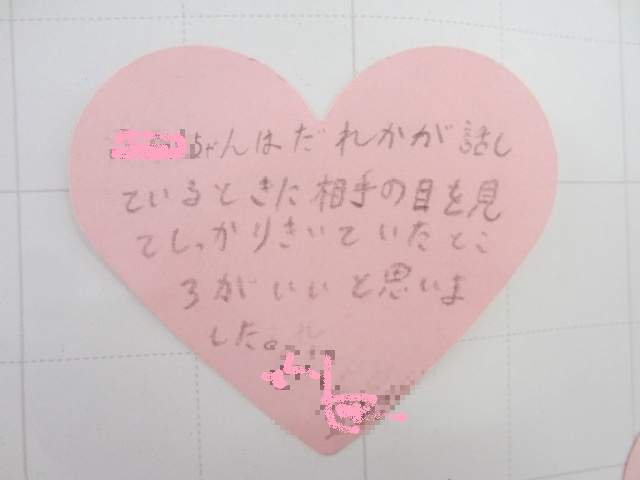 ちゃんはだれかが話し
ているときに相手の目を見
てしっかりきいていたとこ
ろがいいと思いま
した。